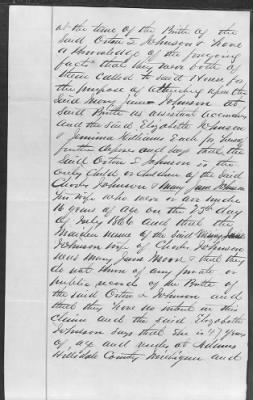 at the time of the Birth of the
said Orton L Johnson & have
a knowledge of the foregoing
facts that they were both of
them called to said House for
the purpose of attending upon the
said Mary Jane Johnson at
said Birth as assistant
and the said Elizabeth Johnson
& Jemima Williams Each for
further depose and say that the
said Orton L Johnson is the
only Child or children of the said
Charles Johnson & Mary Jane Johnson
his wife who were or are under
16 years of age on the 25th day
of July 1866 and that the
Maiden name of the said Mary Jane
Johnson wife of Charles Johnson
was Mary Jane Moore & that they
do not know of any private or
public records of the Birth of
the said Orton L Johnson and
that they have no interest in this
claim and the said Elizabeth
Johnson says that she is 47 years
of age and resides at Adams
Hillsdale County Michigan and